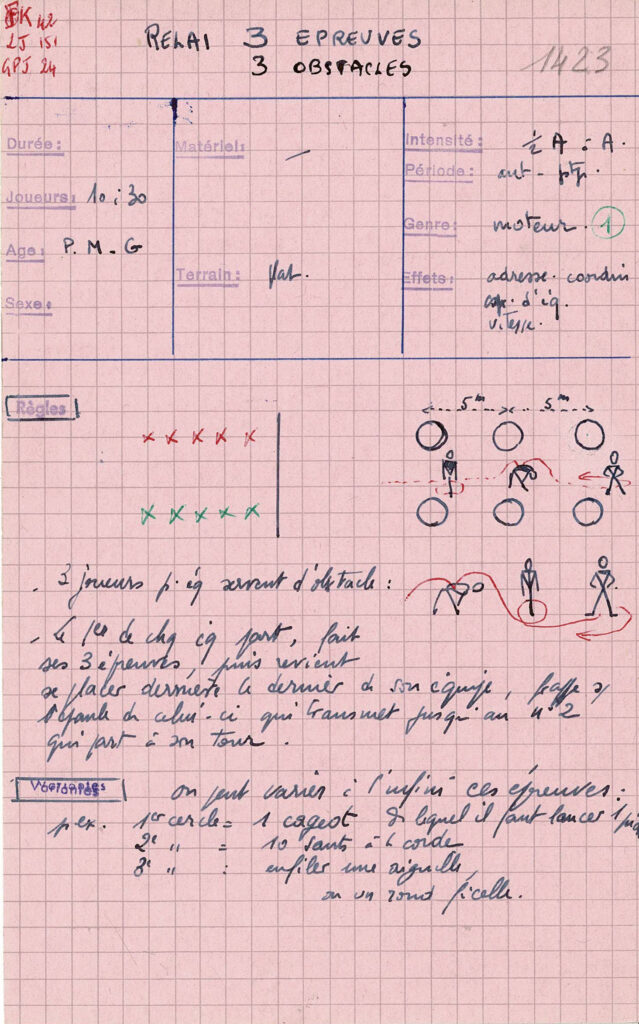 FK 42
LJ 151
GPJ 24
RELAI 3 EPREUVES
3 OBSTACLES
1423
Durée:
Joueurs: 10 à 30
Age: P. M. G
Sexe:
Matériel: —
Terrain: plat.
Intensité: ½ A à A.
Période: aut - ptp.
Genre: moteur. 1
Effets: adresse. coordin
esp. d'éq.
vitesse.
Règles
5m 5m
. 3 joueurs p. éq servent d'obstacle :
. Le 1er de chq éq part, fait
ses 3 épreuves, puis revient
se placer derrière le dernier de son équipe, frappe s/
l'épaule de celui-ci qui transmet jusqu'au n° 2
qui part à son tour.
Variantes on peut varier à l'infini ces épreuves :
p ex. 1er cercle = 1 cageot ds lequel il faut lancer 1
2e " = 10 sauts à la corde
3e " : enfiler une aiguille,
ou un rond ficelle.